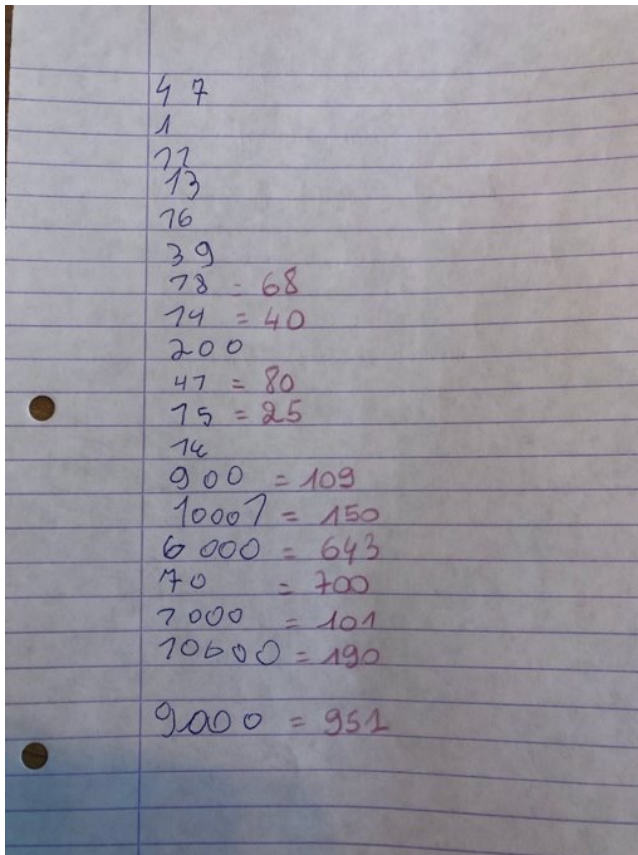 47
1
11
13
16
39
18 = 68
14 = 40
200
47 = 80
15 = 25
14
900 = 109
10001 = 150
6000 = 643
70 = 700
1000 = 101
10600 = 190
9000 = 951